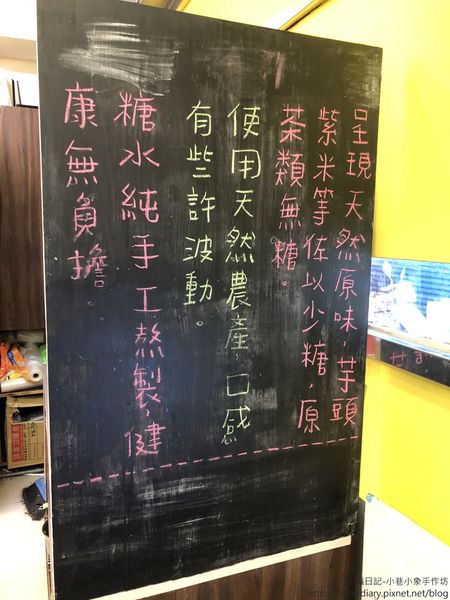 呈現天然原味，芋頭
紫米等佐以少糖，原
茶類無糖。
使用天然農產，口感
有些許波動。
糖水純手工熬製，健
康無負擔。
日記-小巷小象手作坊
diary.net/blog